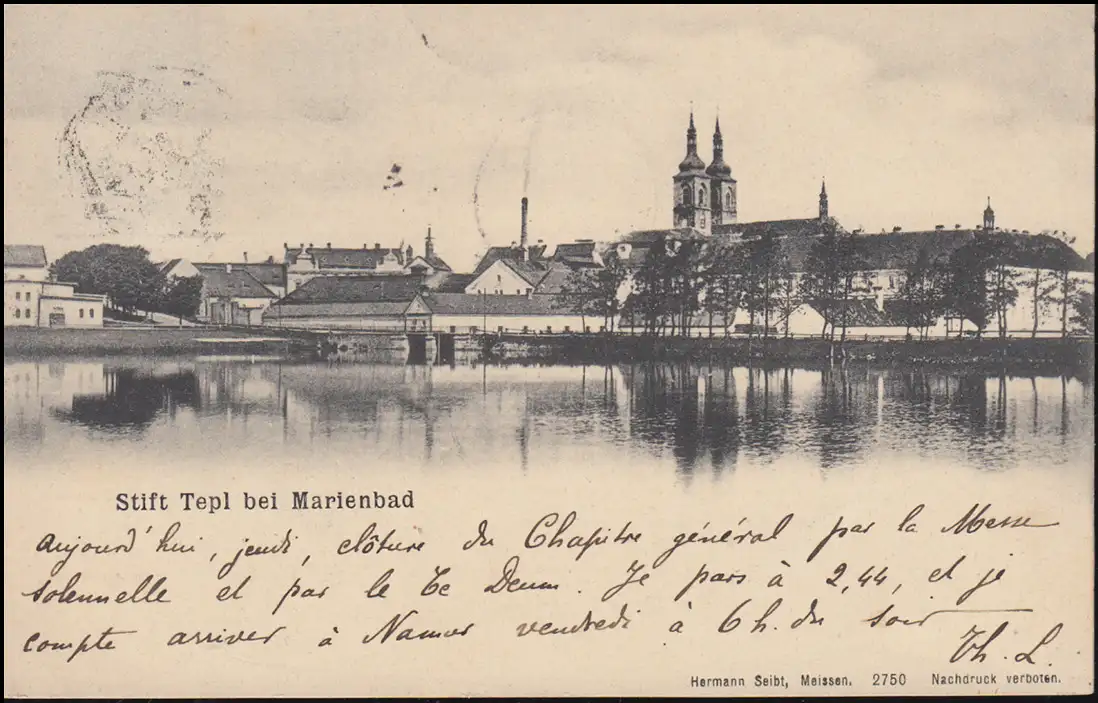 Stift Tepl bei Marienbad
Aujourd'hui, jeudi, clôture du Chapitre général par la Messe
solennelle et par le Te Deum. Je pars à 2,44, et je
compte arriver à Namur vendredi à 6 h. du soir
Th. L.
Hermann Seibt, Meissen. 2750 Nachdruck verboten.